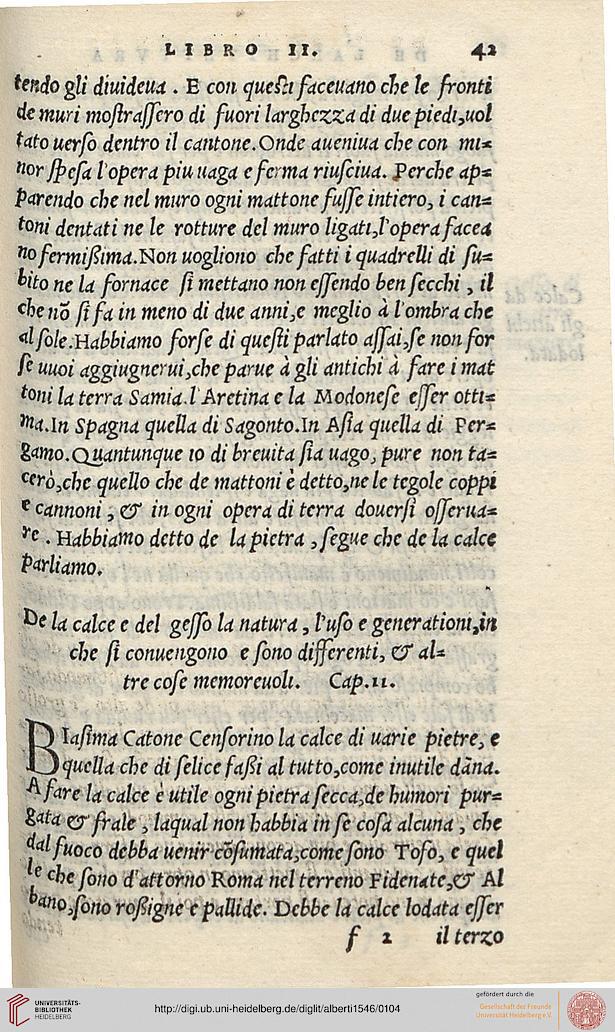 LIBRO II. 42
tendo gli diuideua . E con questi faceuano che le fronti
de muri mostrassero di fuori larghezza di due piedi,uol
tato uerso dentro il cantone.Onde aueniua che con mi=
nor spesa l'opera piu uaga e ferma riusciua. Perche ap=
parendo che nel muro ogni mattone fusse intiero, i can=
toni dentati ne le rotture del muro ligati,l'opera facea
no fermißima.Non uogliono che fatti i quadrelli di su=
bito ne la fornace si mettano non essendo ben secchi , il
che nõ si fa in meno di due anni,e meglio à l'ombra che
al sole.Habbiamo forse di questi parlato assai,se non for
se uuoi aggiugnerui,che parue à gli antichi à fare i mat
toni la terra Samia.l'Aretina e la Modonese esser otti=
ma.In Spagna quella di Sagonto.In Asia quella di Per=
gamo.Quantunque io di breuita sia uago, pure non ta=
cerò,che quello che de mattoni è detto,ne le tegole coppi
e cannoni , & in ogni opera di terra douersi osserua=
re . Habbiamo detto de la pietra , segue che de la calce
parliamo.
De la calce e del gesso la natura , l'uso e generationi,in
che si conuengono e sono differenti, & al=
tre cose memoreuoli. Cap.11.
BIasima Catone Censorino la calce di uarie pietre, e
quella che di selice faßi al tutto,come inutile dãna.
A fare la calce è utile ogni pietra secca,de humori pur=
gata & frale , laqual non habbia in se cosa alcuna , che
dal fuoco debba uenir cõsumata,come sono Tofo, e quel
le che sono d'attorno Roma nel terreno Fidenate,& Al
bano,sono roßigne e pallide. Debbe la calce lodata esser
f 2 il terzo
UNIVERSITÄTS-
BIBLIOTHEK
HEIDELBERG
http://digi.ub.uni-heidelberg.de/diglit/alberti1546/0104
gefördert durch die
Gesellschaft der Freunde
Universität Heidelberg e.V.